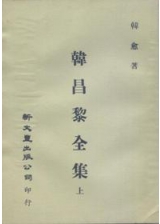 韓愈著
韓昌黎全集 上
新文豐出版公司 印行